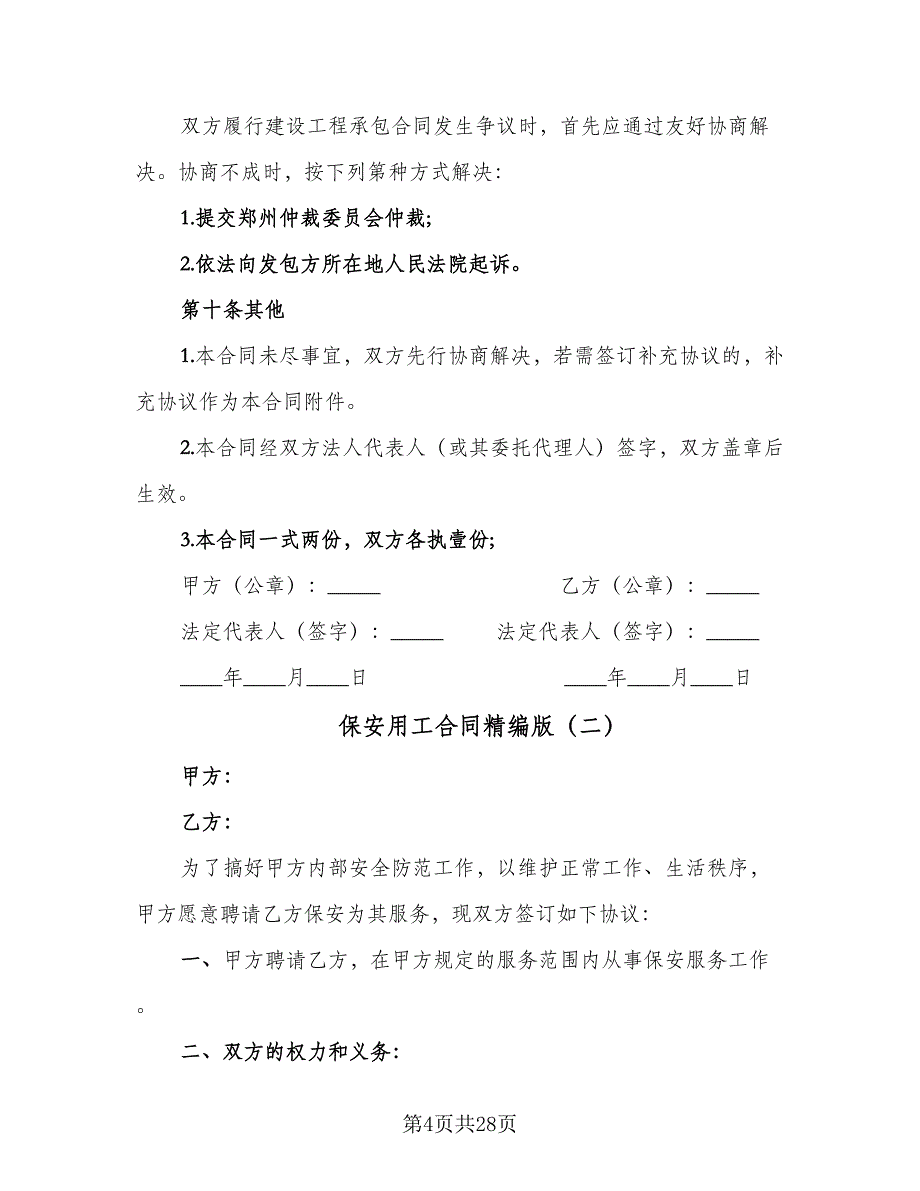 双方履行建设工程承包合同发生争议时，首先应通过友好协商解
决。协商不成时，按下列第种方式解决：
1.提交郑州仲裁委员会仲裁;
2.依法向发包方所在地人民法院起诉。
第十条其他
1.本合同未尽事宜，双方先行协商解决，若需签订补充协议的，补
充协议作为本合同附件。
2.本合同经双方法人代表人（或其委托代理人）签字，双方盖章后
生效。
3.本合同一式两份，双方各执壹份;
甲方（公章）：_____ 乙方（公章）：_____
法定代表人（签字）：_____ 法定代表人（签字）：_____
____年____月____日 ____年____月____日
保安用工合同精编版（二）
甲方：
乙方：
为了搞好甲方内部安全防范工作，以维护正常工作、生活秩序，
甲方愿意聘请乙方保安为其服务，现双方签订如下协议：
一、甲方聘请乙方，在甲方规定的服务范围内从事保安服务工作
。
二、双方的权力和义务：
第4页共28页